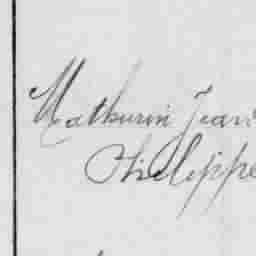 Mathurin Jean
Philippe